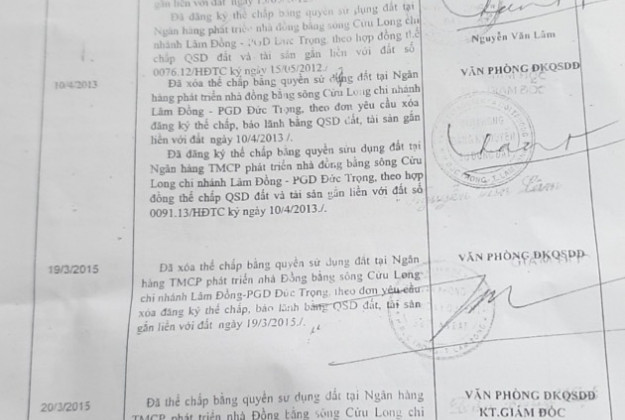 gắn liền với đất ngày
Đã đăng ký thế chấp bằng quyền sử dụng đất tại
Ngân hàng phát triển nhà đồng bằng sông Cửu Long chi
nhánh Lâm Đồng - PGD Đức Trọng, theo hợp đồng thế
chấp QSD đất và tài sản gắn liền với đất số
0076.12/HĐTC ký ngày 15/05/2012./
Nguyễn Văn Lâm
10/4/2013
Đã xóa thế chấp bằng quyền sử dụng đất tại Ngân
hàng phát triển nhà đồng bằng sông Cửu Long chi nhánh
Lâm Đồng - PGD Đức Trọng, theo đơn yêu cầu xóa
đăng ký thế chấp, bảo lãnh bằng QSD đất, tài sản gắn
liền với đất ngày 10/4/2013 /.
Đã đăng ký thế chấp bằng quyền sưu dụng đất tại
Ngân hàng TMCP phát triển nhà đồng bằng sông Cửu
Long chi nhánh Lâm Đồng - PGD Đức Trọng, theo hợp
đồng thế chấp QSD đất và tài sản gắn liền với đất số
0091.13/HĐTC ký ngày 10/4/2013./.
VĂN PHÒNG ĐKQSDĐ
GIÁM ĐỐC
19/3/2015
Đã xóa thế chấp bằng quyền sử dụng đất tại Ngân
hàng TMCP phát triển nhà Đồng bằng sông Cửu Long
chi nhánh Lâm Đồng-PGD Đức Trọng, theo đơn yêu cầu
xóa đăng ký thế chấp, bảo lãnh bằng QSD đất, tài sản
gắn liền với đất ngày 19/3/2015./.
VĂN PHÒNG ĐKQSDĐ
20/3/2015
Đã thế chấp bằng quyền sử dụng đất tại Ngân hàng
TMCP phát triển nhà Đồng bằng sông Cửu Long chi
VĂN PHÒNG ĐKQSDĐ
KT.GIÁM ĐỐC